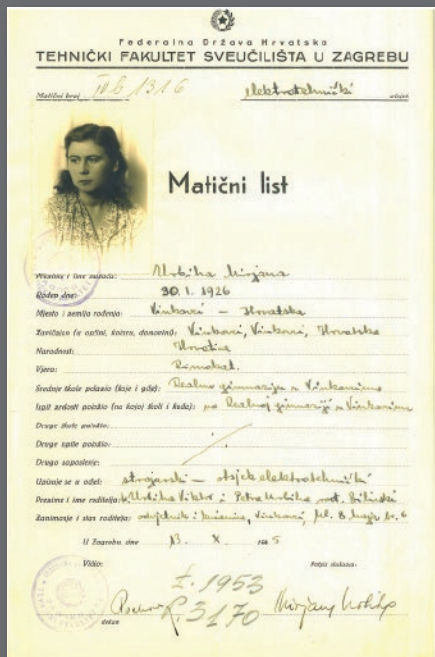 Federalna Država Hrvatska
TEHNIČKI FAKULTET SVEUČILIŠTA U ZAGREBU
Matični broj IV b 1316 elektrotehnički odsjek
Matični list
Prezime i ime slušača: Urbiha Mirjana
Rođen dne: 30. I. 1926
Mjesto i zemlja rođenja: Vinkovci – Hrvatska
Zavičajan (u općini, kotaru, Vinkovci, Vinkovci, Hrvatska
Narodnost: Hrvatica
Vjera: Rimokat.
Srednje škole polazio (koje i gdje): Realnu gimnaziju u Vinkovcima
Ispit zrelosti položio (na kojoj školi i kada): na Realnoj gimnaziji u Vinkovcima
Druge škole polazio:
Druge ispite položio:
Drugo zaposlenje:
Upisuje se u odjel: strojarski – odsjek elektrotehnički
Prezime i ime roditelja: Urbiha Viktor i Petra Urbiha rođ. Bilinski
Zanimanje i stan roditelja: Vinkovci, br. 6
U Zagrebu, dne 13. X. 5
Vidio: Potpis slušača:
I. 1953
R. 3170
dekan Mirjana Urbiha